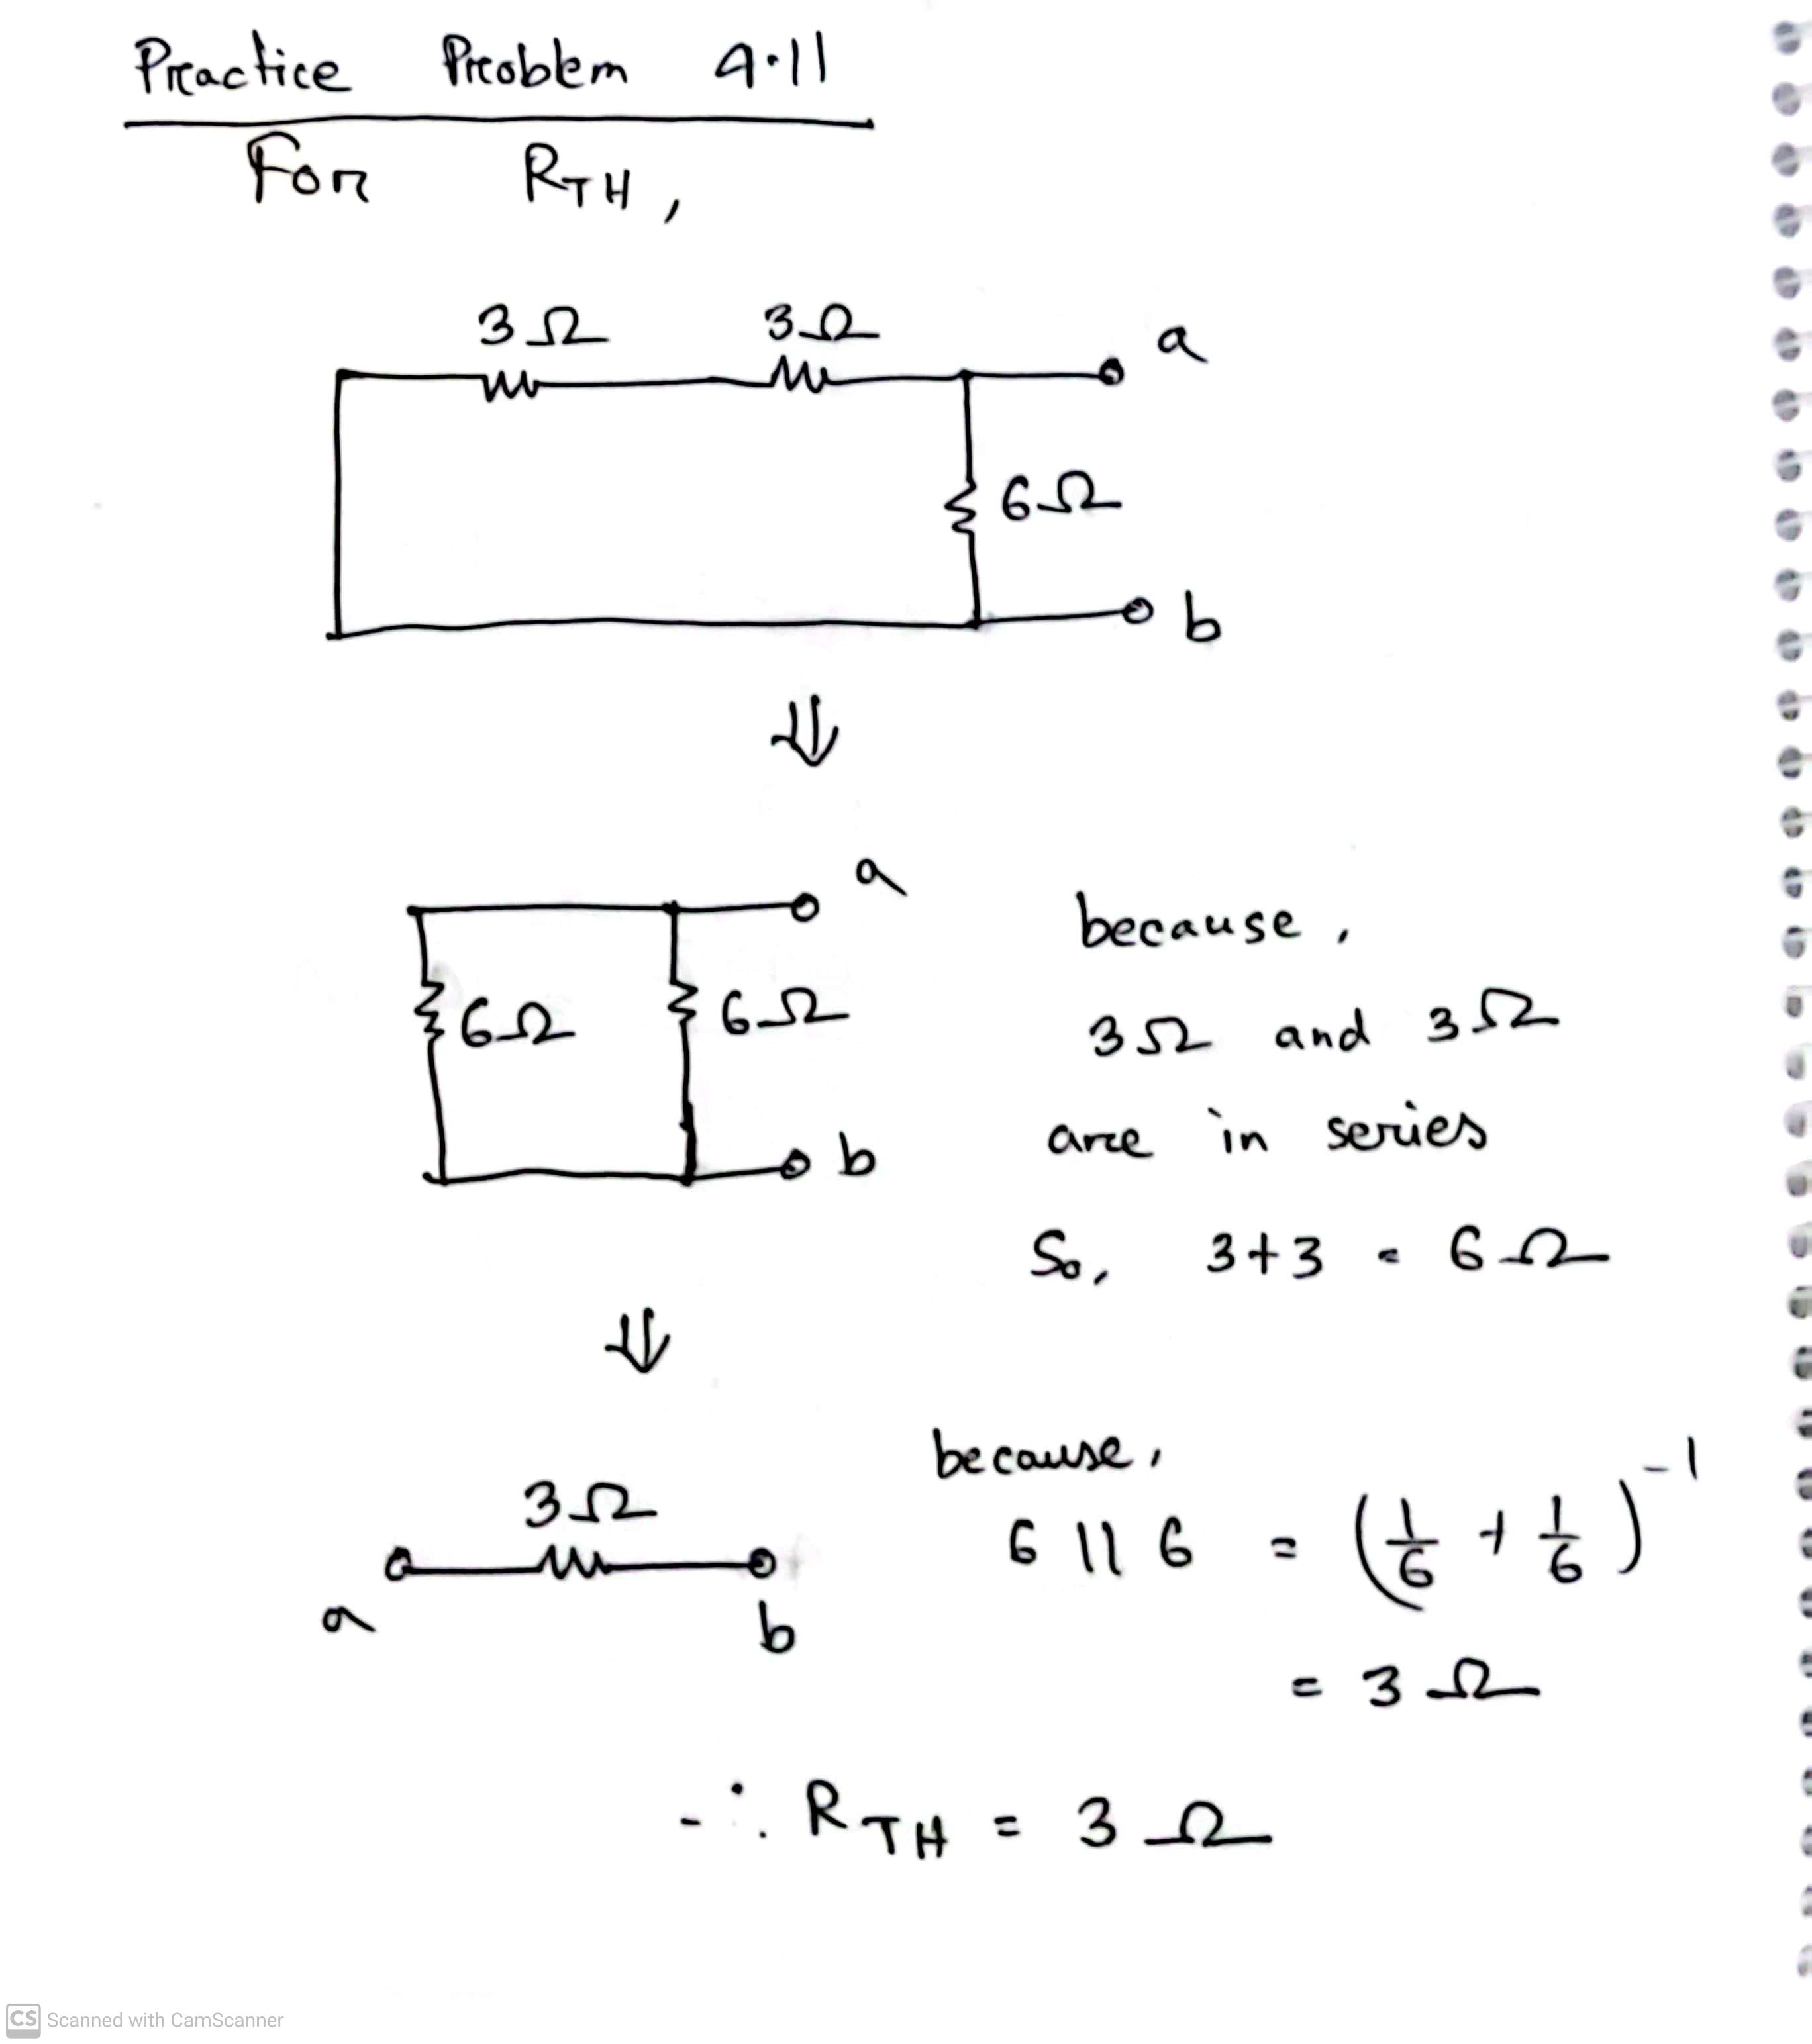 Practice Problem 4.11
For RTH,
3Ω 3Ω
a
6Ω
b
⇓
a
6Ω 6Ω
b
because,
3Ω and 3Ω
are in series
So, 3+3 = 6Ω
⇓
3Ω
a b
because,
6 || 6 = (1/6 + 1/6)⁻¹
= 3Ω
∴ RTH = 3Ω
CS Scanned with CamScanner